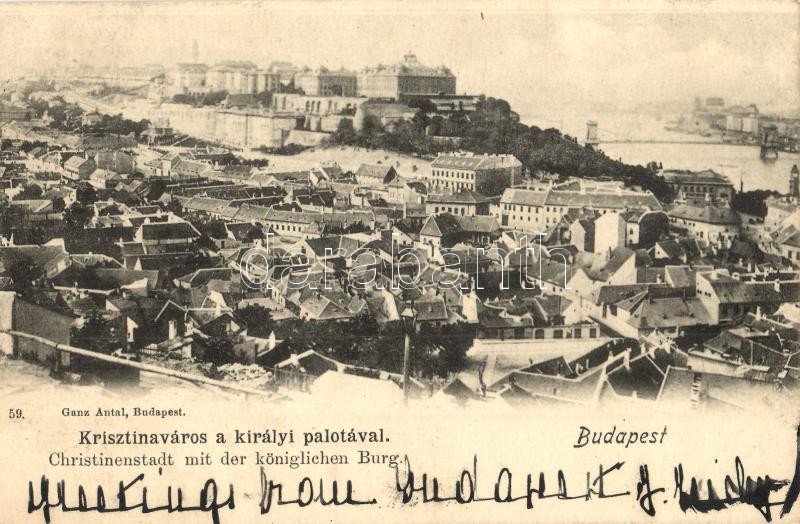 darabanth
59. Ganz Antal, Budapest.
Krisztinaváros a királyi palotával. Budapest
Christinenstadt mit der königlichen Burg.
greetings from budapest